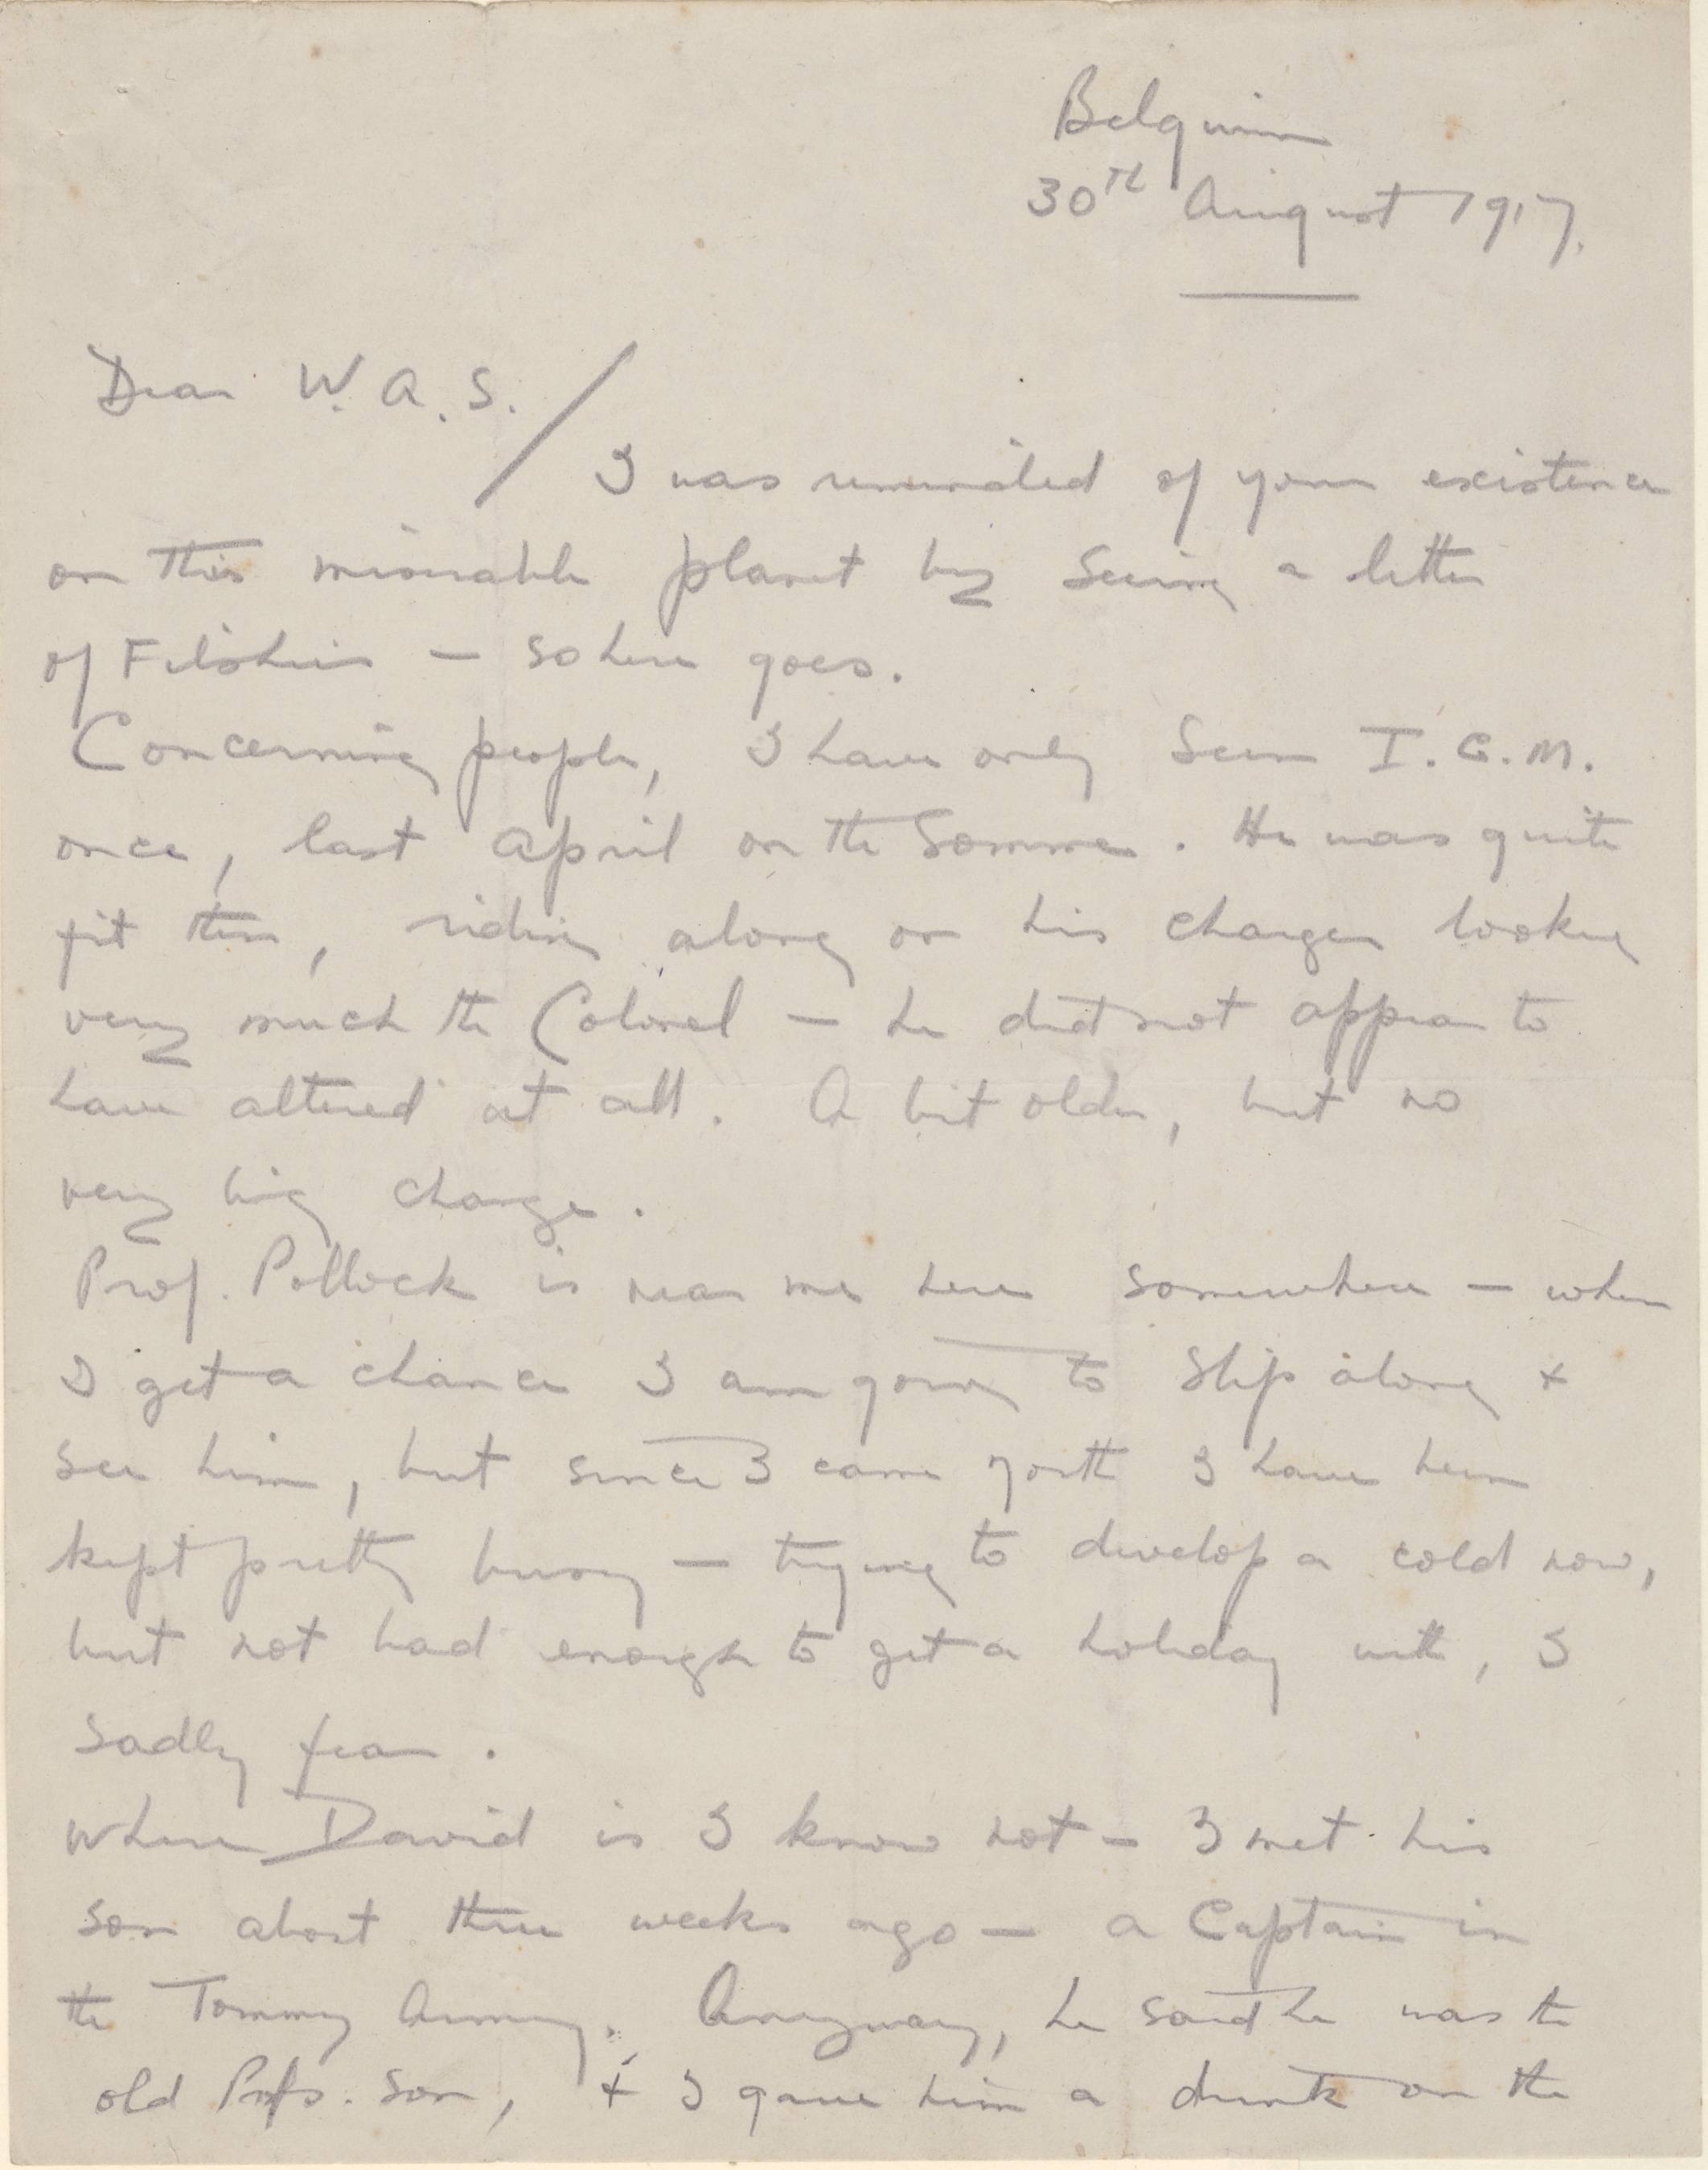 Belgium
30th August 1917.
Dear W. A. S.
I was reminded of your existence
on this miserable planet by seeing a letter
of Filshies – so here goes.
Concerning people, I have only seen I. G. M.
once, last April on the Somme. He was quite
fit then, riding along on his charger looking
very much the Colonel – he did not appear to
have altered at all. A bit older, but no
very big change.
Prof. Pollock is near me here somewhere – when
I get a chance I am going to slip along +
see him, but since I came north I have been
kept pretty busy – trying to develop a cold now,
but not bad enough to get a holiday with, I
sadly fear.
Where David is I know not – I met his
son about three weeks ago – a Captain in
the Tommy Army. Anyway, he said he was the
old Profs. son, + I gave him a drink on the